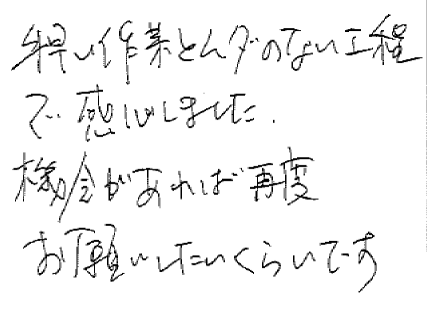 手早い作業とムダのない工程
で感心しました.
機会があれば再度
お願いしたいくらいです